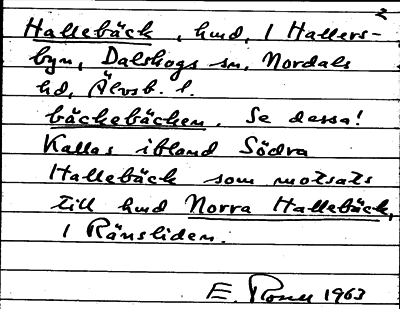 2
Hallebäck, hmd, I Hallers-
byn, Dalskogs sn, Nordals
hd, Älvsb. l.
bäckebäcken. Se dessa!
Kallas ibland Södra
Hallebäck som motsats
till hmd Norra Hallebäck,
I Ränsliden.
E. 1963